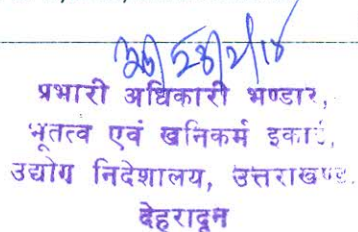 प्रभारी अधिकारी भण्डार,
भूतत्व एवं खनिकर्म इकाई,
उद्योग निदेशालय, उत्तराखण्ड.
देहरादून